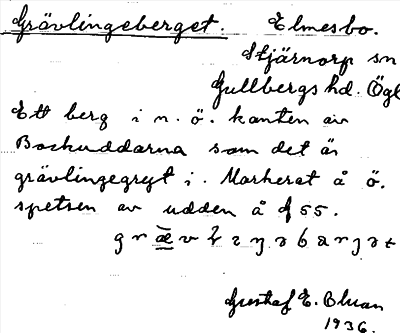 Grävlingeberget. Elmesbo.
Stjärnorp sn
Gullbergs hd. Ögl
Ett berg i n. ö. kanten av
Bockuddarna som det är
grävlingegryt i. Markerat å ö.
spetsen av udden å
Gustaf E.
1936.